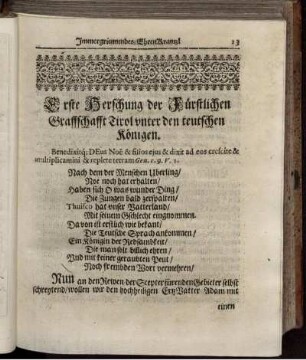 Immergrünender EhrenKrantz 13
Erste Herschung der Fürstlichen
Graffschafft Tirol vnter den teutschen
Königen.
Benedixitq; DEus Noë & filios ejus & dixit ad eos crescite &
multiplicamini & replete terram Gen. c. 9. V. 1.
Nach dem der Menschen Uberling/
Noe noch hat erhalten/
Haben sich O was wunder Ding/
Die Zungen bald zerspalten/
Thuisco hat vnser Vatterland/
Mit seinem Gschlecht eingnommen.
Davon ist erstlich wie bekant/
Die Teutsche Sprach ankommen/
Ein Königin der Redsamkeit/
Die man solt billich ehren/
Vnd mit keiner geraubten Beut/
Noch frembden Wort vermehren/
Nun an den Newen der Scepter fürenden Gebieter selbst
schreytend/ wollen wir den hochheiligen ErtzVatter Adam mit
einen